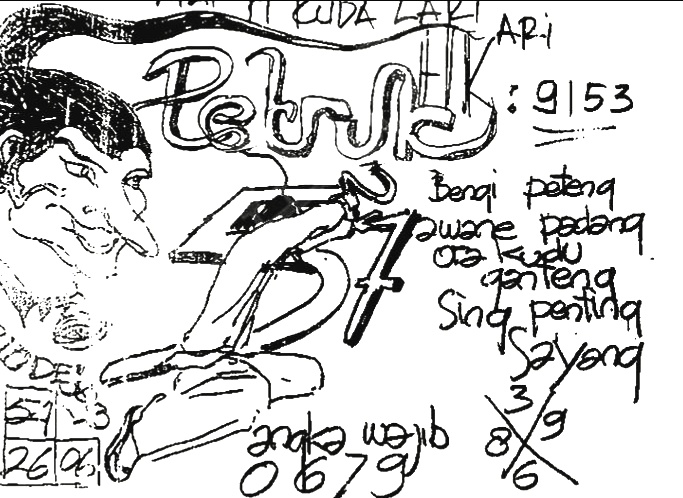 KUDA LARI
ARI
Petruk
: 9153
57
Bengi peteng
awane padang
ora kudu
ganteng
Sing penting
Sayang
KODE
51 - 3
26 96
angka wajib
0 6 7 9
3
8 9
6